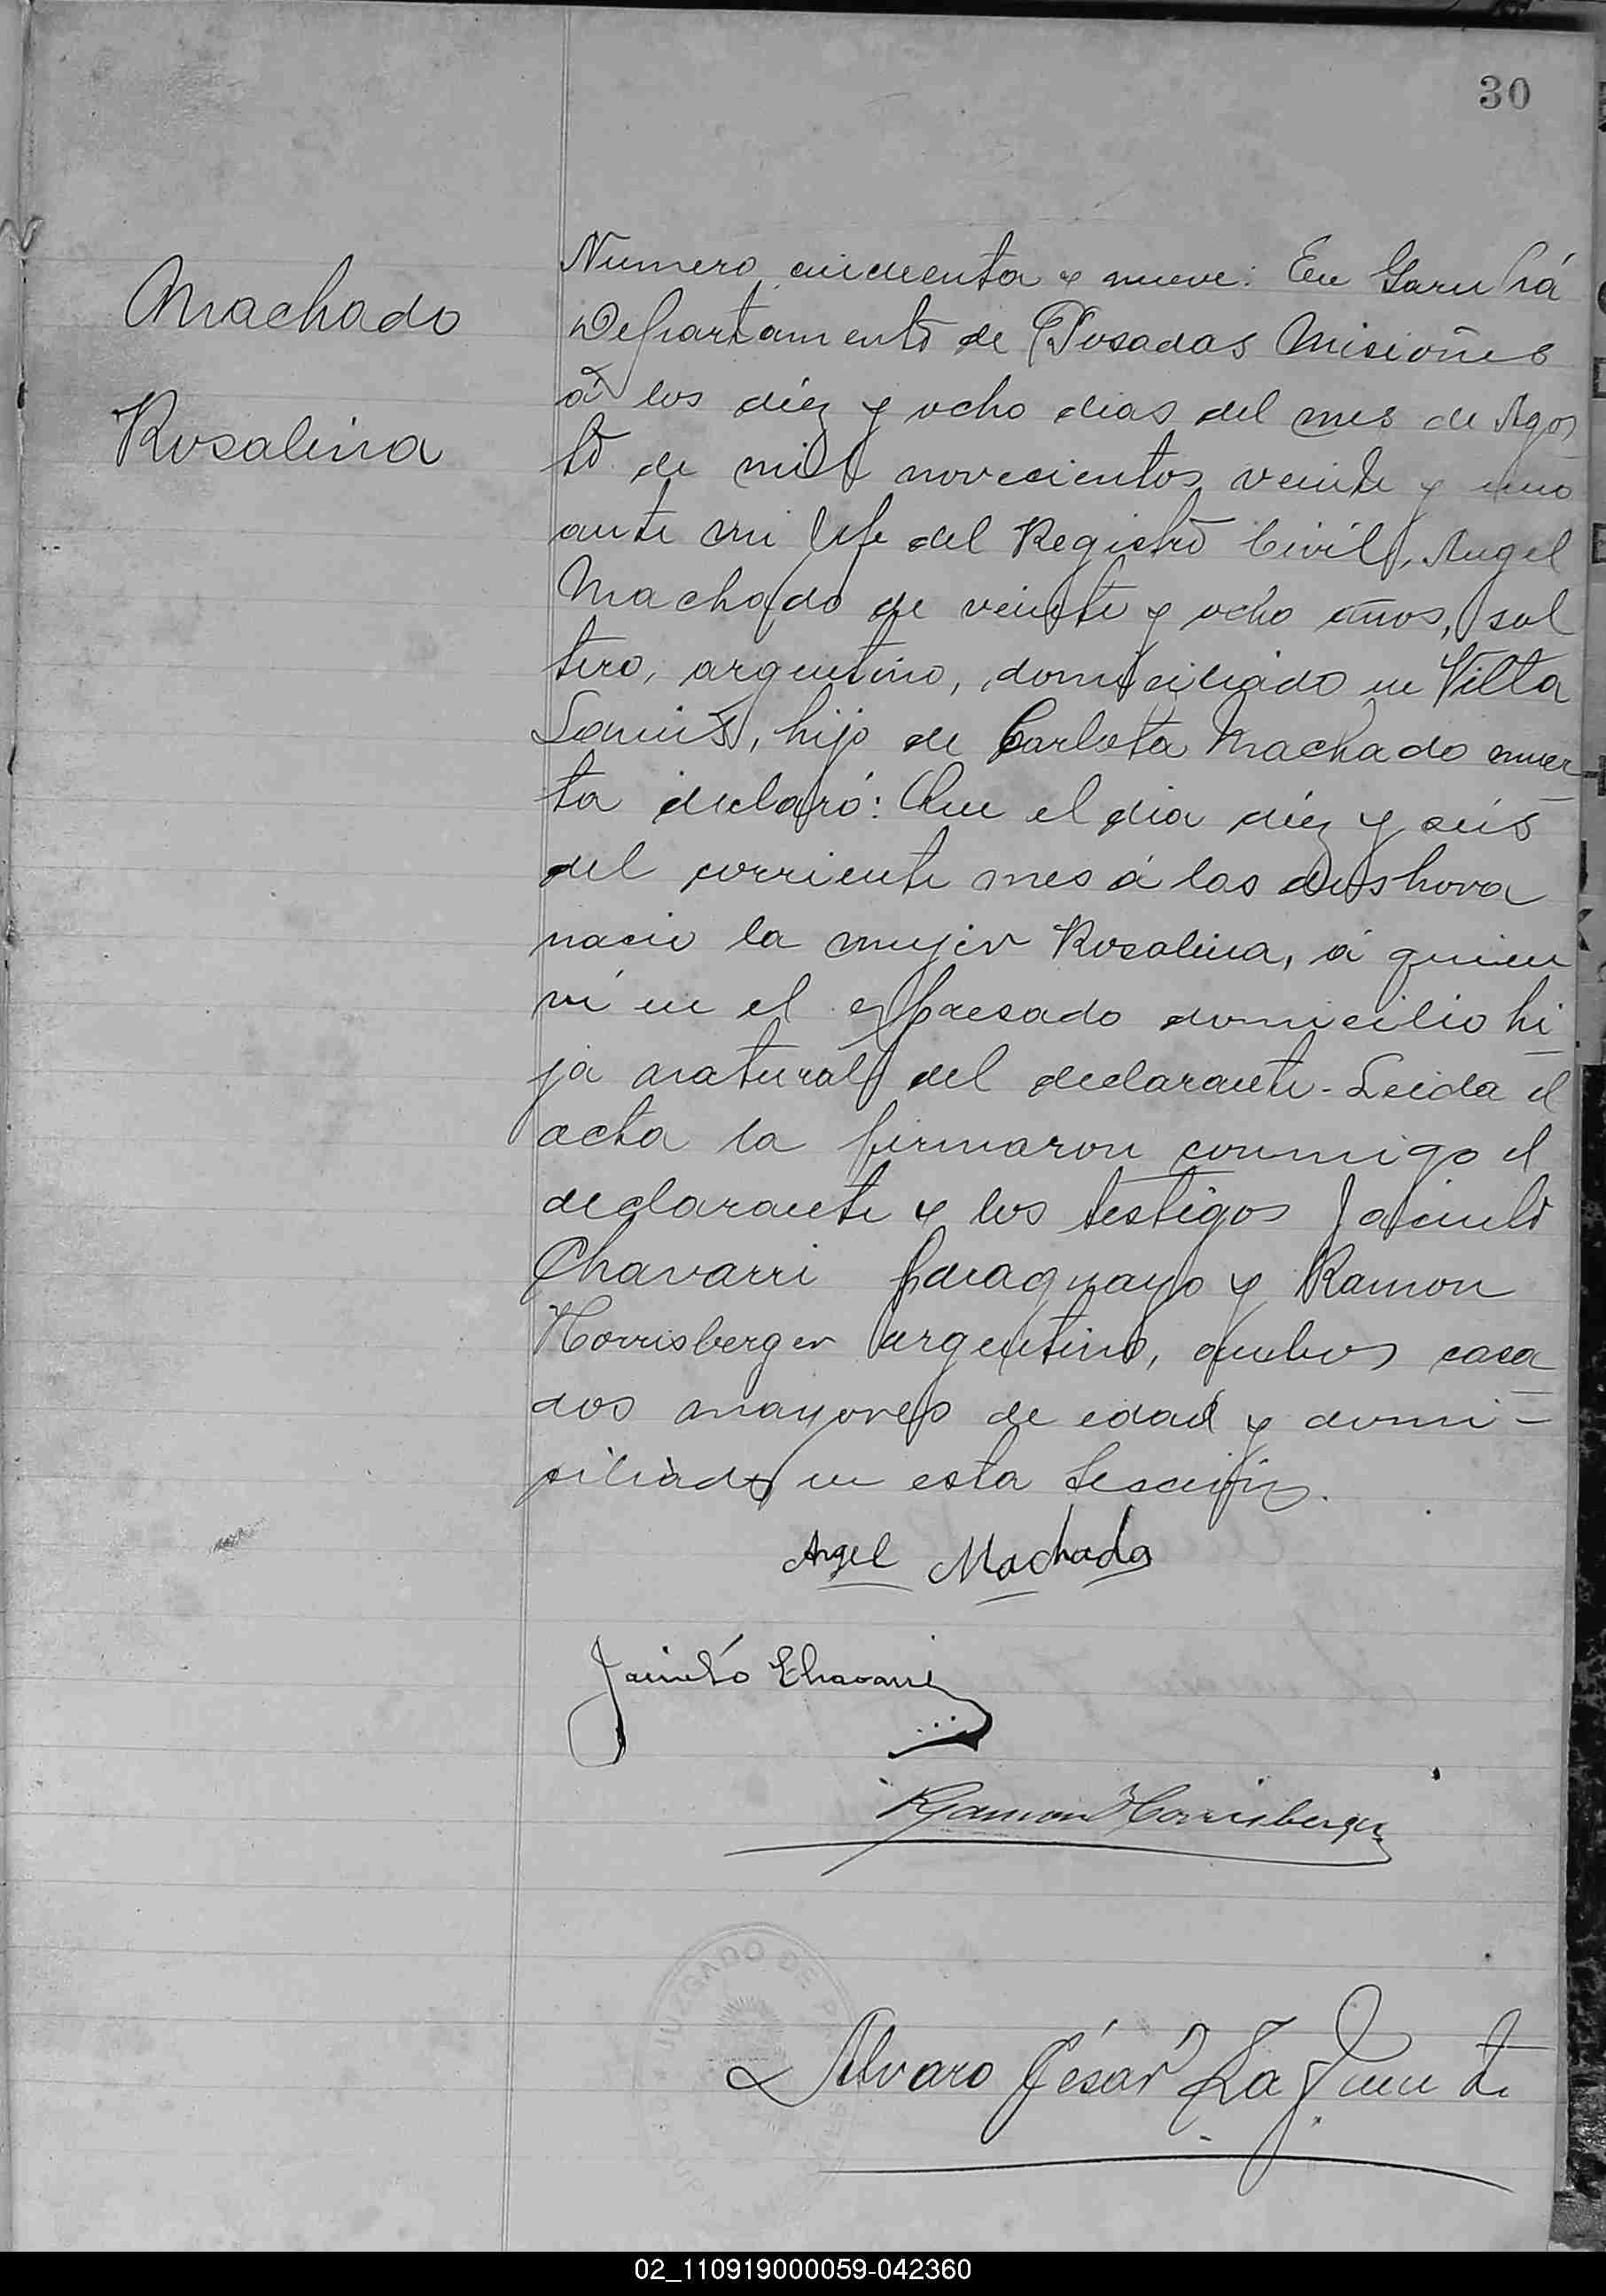 30
Machado
Rosalina
Numero cincuenta y nueve: En Garupá
Departamento de Posadas Misiones
á los diéz y ocho dias del mes de Agos
to de mil novecientos veinte y uno
ante mi Jefe del Registro Civil, Angel
Machado de veinte y ocho años, sol
tero, argentino, domiciliado en Villa
Lanús, hijo de Carlota Machado muer
ta declaró: Que el dia diéz y seis
del corriente mes á las dos hora
nacio la mujer Rosalina, á quien
ví en el expresado domicilio hi
ja natural del declarante - Leida el
acta la firmaron conmigo el
declarante y los testigos Jacinto
Chavarri paraguayo y Ramon
Horrisberger argentino, ambos casa
dos mayores de edad y domi-
ciliados en esta
Angel Machado
Jacinto Chavarri
Ramon Horrisberger
JUZGADO DE P
Alvaro César La Fuente
02_110919000059-042360